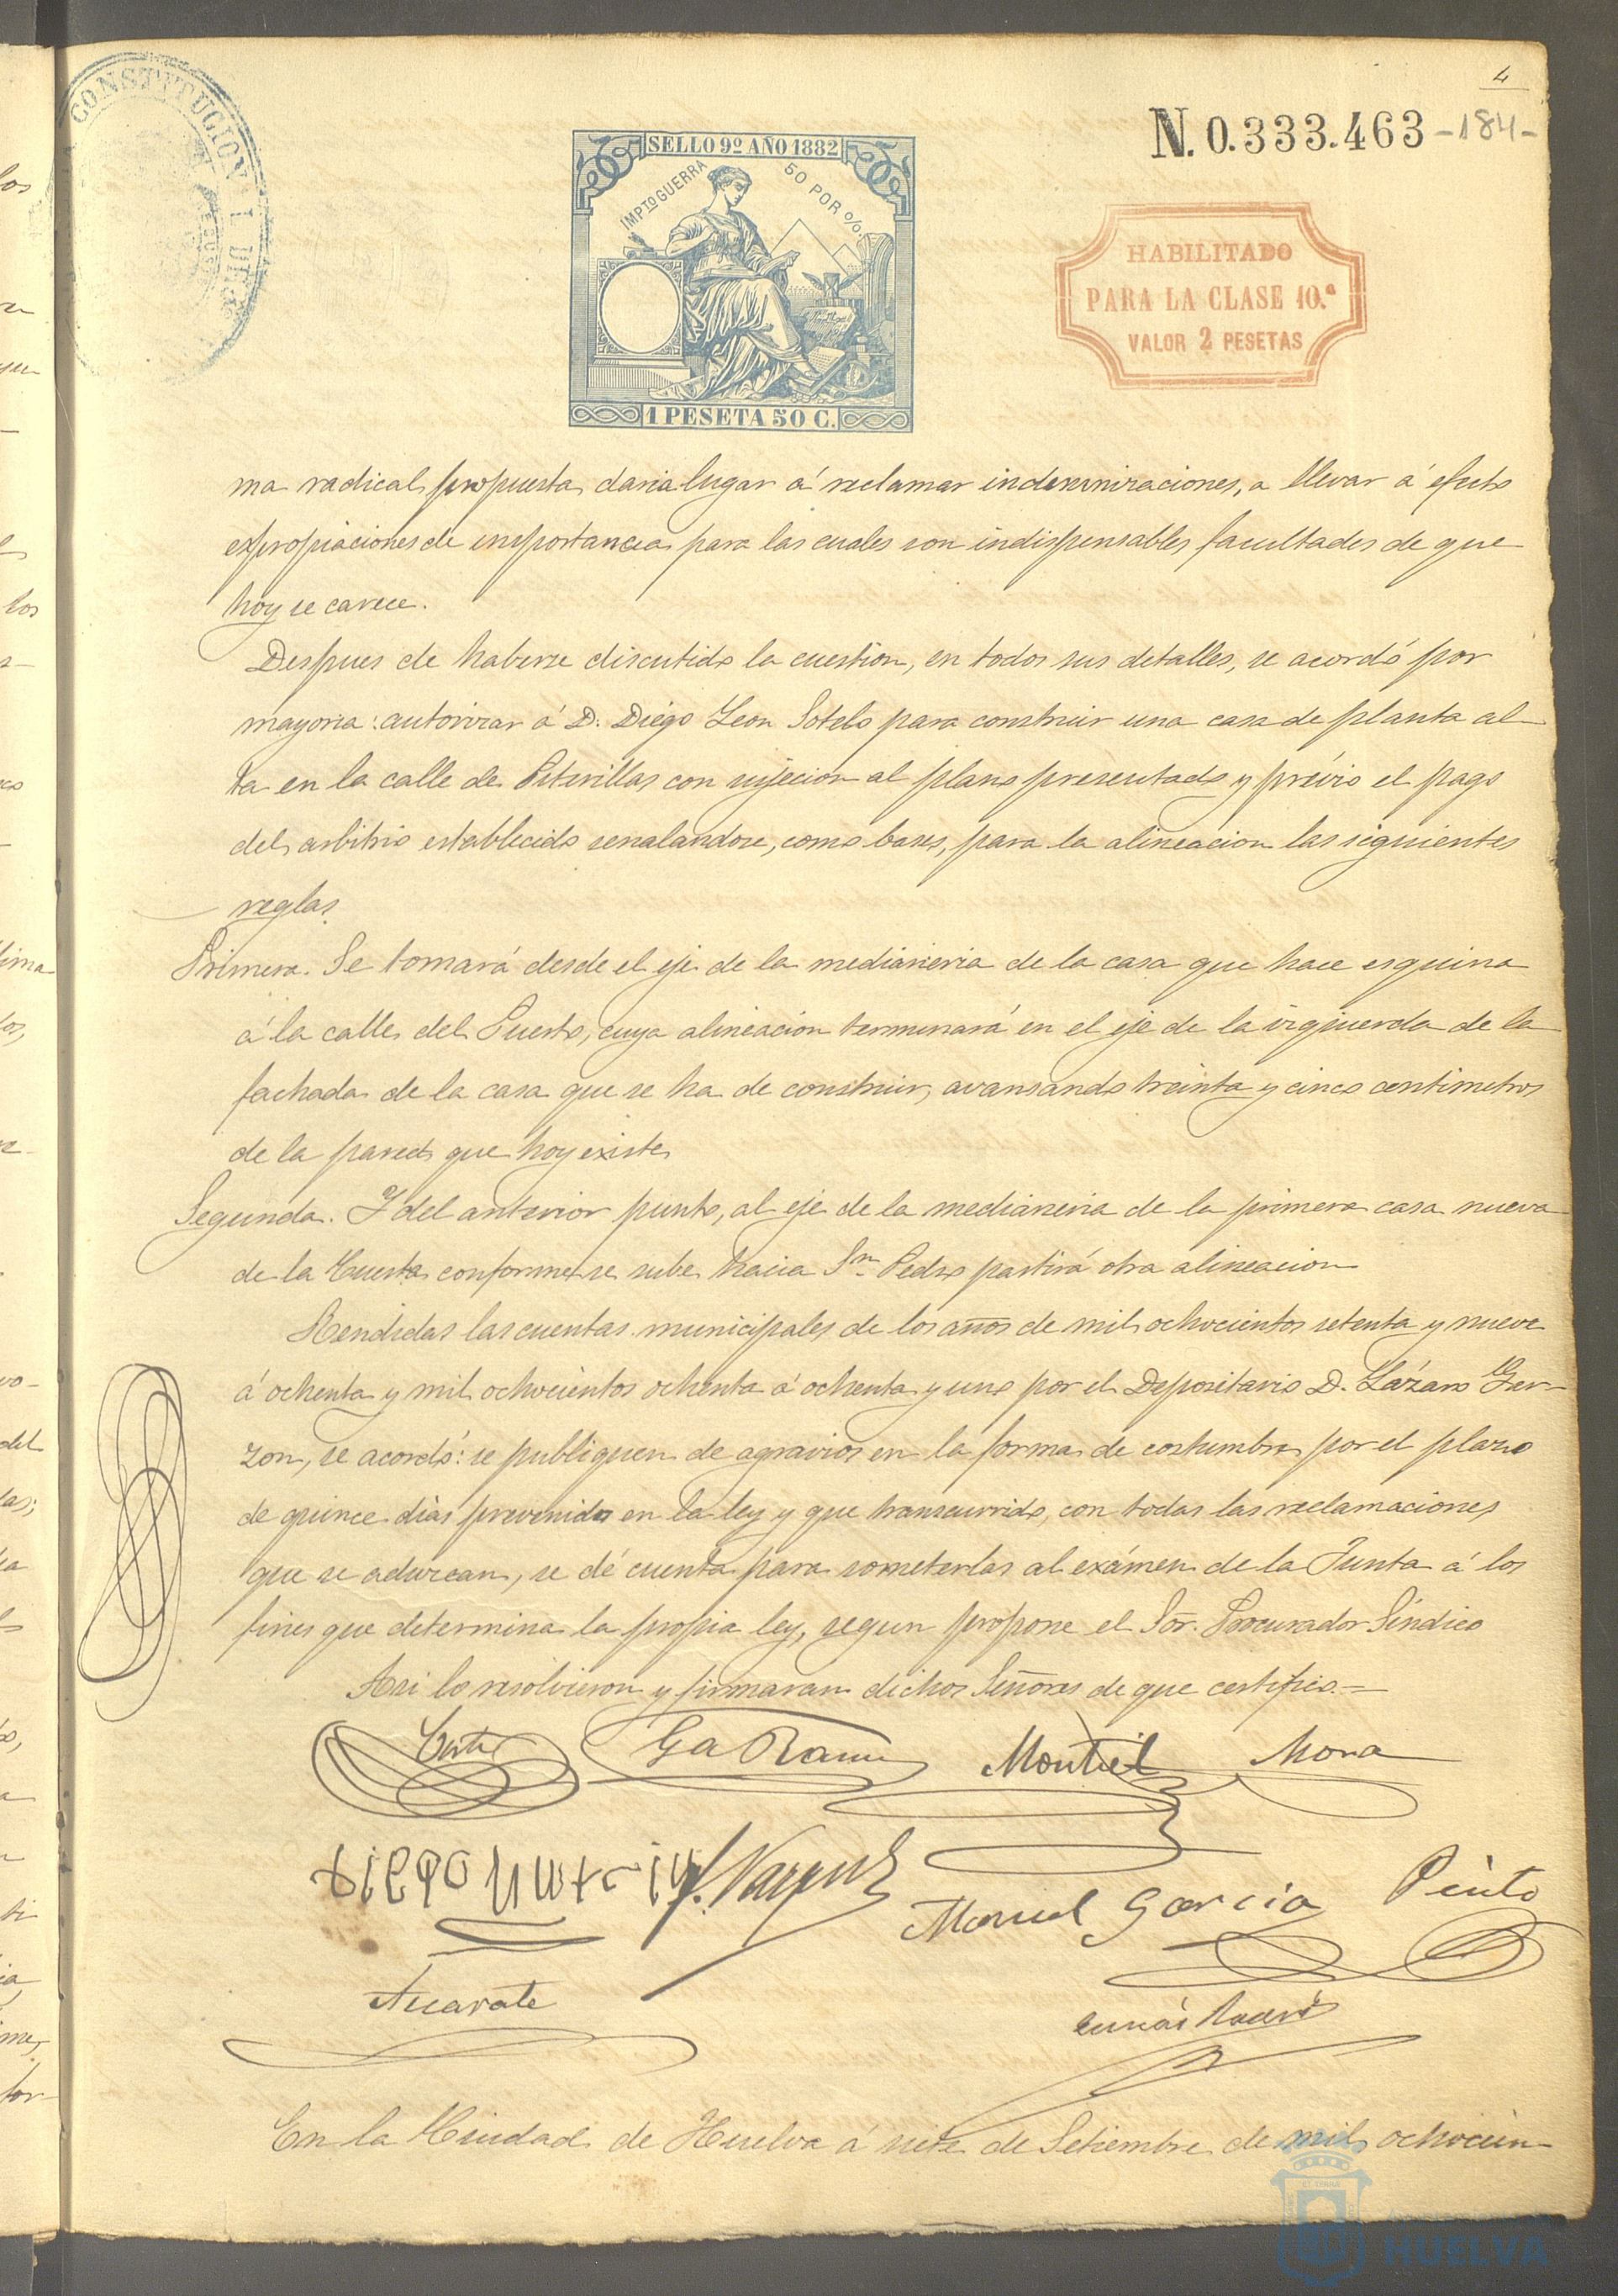 4
N. 0.333.463 -184-
CONSTITUCION
SELLO 9º AÑO 1882
IMPTO GUERRA 50 POR %.
1 PESETA 50 C.
HABILITADO
PARA LA CLASE 10.ª
VALOR 2 PESETAS
ma radical propuesta, daria lugar á reclamar indemnizaciones, a llevar á efecto
expropiaciones de importancia para las cuales son indispensables facultades de que
hoy se carece.
Despues de haberse discutido la cuestion, en todos sus detalles, se acordó por
mayoria: autorizar á D. Diégo Leon Sotelo para construir una casa de planta al-
ta en la calle de Esterillas con sujecion al plano presentado y prévio el pago
del arbitrio establecido senalandose, como bases, para la alineacion las siguientes
reglas.
Primera. Se tomará desde el eje de la medianeria de la casa que hace esquina
á la calle del Puerto, cuya alineacion terminará en el eje de la izquierda de la
fachada de la casa que se ha de construir, avansando treinta y cinco centimetros
de la pared que hoy existe
Segunda. Y del anterior punto, al eje de la medianeria de la primera casa nueva
de la Cuesta conforme se sube hacia Sn. Pedro partirá otra alineacion
Rendidas las cuentas municipales de los años de mil ochocientos setenta y nueve
á ochenta y mil ochocientos ochenta á ochenta y uno por el Depositario D. Lázaro Gar-
zon, se acordó: se publiquen de agravios en la forma de costumbre por el plazo
de quince dias prevenido en la ley y que transcurrido, con todas las reclamaciones
que se aduzcan, se dé cuenta para someterlas al exámen de la Junta á los
fines que determina la propia ley, segun propone el Sor. Procurador Síndico
Asi lo resolvieron y firmaran dichos Señores de que certifico.=
Ga Ramz Montiel Mora
Vazquez
Manuel Garcia Pinto
Azcarate
En la Ciudad de Huelva á siete de Setiembre de mil ochocien-
HUELVA